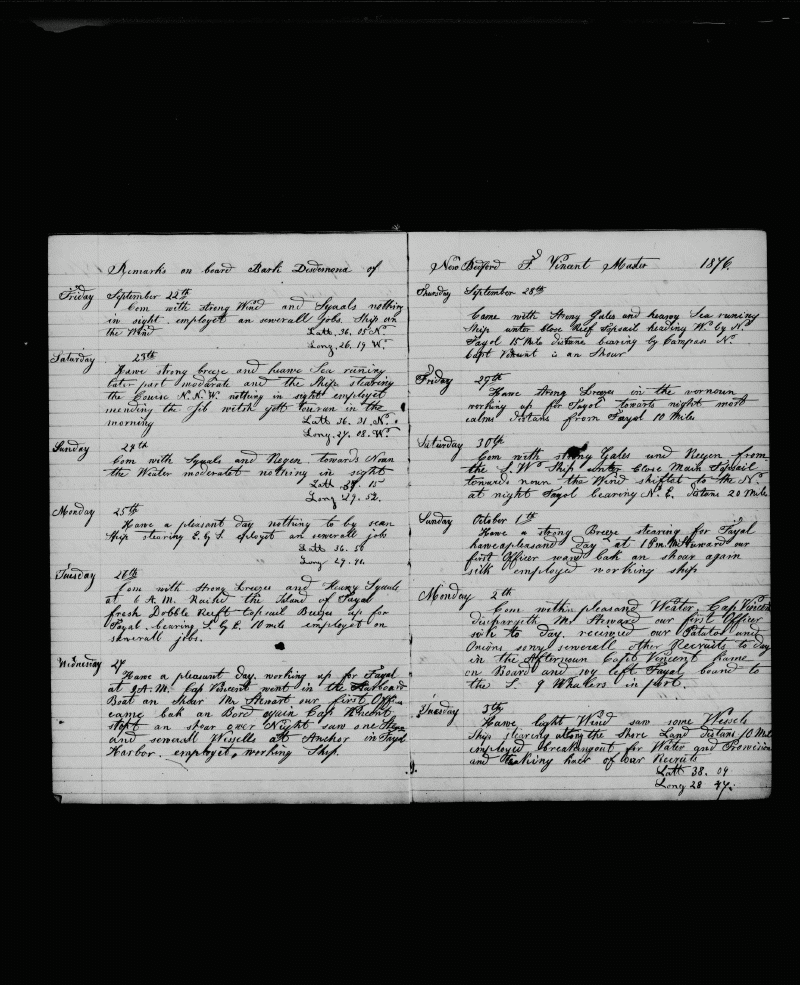 Remarks on board Bark Desdemona of
Friday September 22th
Com with strong Wind and Sqaals nothing
in sight employet an sewerall Jobs. Ship on
the Wind Latt. 36. 05 N.
Long. 26. 19 W.
Saturday 23th
Hawe strong breeze and heawe Sea runing
later part moderate and the Ship stearing
the Course N.N.W. nothing in sight employet
mending the Jib in the
morning Latt 36. 31. N.
Long. 27. 08. W.
Sunday 24th
Com with Sqaals and Regen towards Noun
the Weater moderatet nothing in sight
Latt 15
Long 27. 52.
Monday 25th
Hawe a pleasant day nothing to by sean
Ship stearing E. by S. eployet an sewerall jobs
Latt 36. 50
Long 27.
Tuesday 26th
Com with Strong Breezes and Heawy Sqaals
at 6 A.M. Raised the Island of Fayal
fresh Dobble Reeft Topsail Breezes up for
Fayal. bearing S. by E. 10 mile employet on
sewerall jobs.
Wednesday 27
Hawe a pleasant day. working up for Fayal
at 9 A.M. Cap Vincent went in the Starboard
Boat an Shoar Mr Stewart our first Officer
came bak an Bord again Cap Vincent
stopt an shoar over Night saw one
and sewerall Wessells att Anchor in Fayal
Harbor. employet, working Ship.
New Bedford F. Vincent Master 1876.
Thursday September 28th
Came with Strong Gales and heavy Sea runing
Ship unter Close Reef Topsail heading W. by N.
Fayol 15 Mile distanc bearing by Compass N.
Capt Vincent is an Shoar
Friday 29th
Hawe Strong Breezes in the vornoun
working up for Fayol towards night most
calms distans from Fayol 10 Miles
Saturday 30th
Com with strong Gales and Regen from
the S.W. Ship unter Close Main Topsail
towards noun the Wind shiftet to the N.
at night Fayol bearing N.E. distans 20 Mile
Sunday October 1th
Hawe a strong Breeze stearing for Fayal
hawe a pleasand day at 1 P.m. Mr Stuward our
first Officer want bak an shoar again
sik employed working ship
Monday 2th
Com with pleasand Weater, Cap Vincent
discharged Mr Steward our first Officer
sik to day. received our Patatos and
Onions some sewerall other Recruits to day
in the Afternoun Capt Vincent came
on Board and wy left Fayal bound to
the S. 9 Whalers in port.
Tuesday 3th
Hawe light Wind saw some Wessels
Ship stearing along the Shore Land distans 10 Mile
employed breakingout for Water and Prowision
and taking kare of our Recruits
Latt 38. 04
Long 28 47.